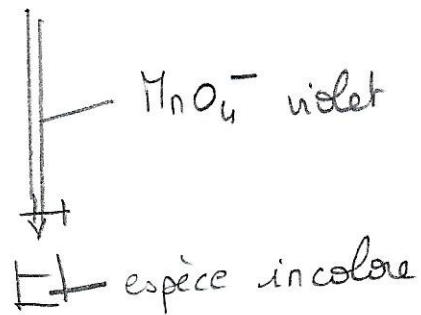 MnO₄⁻ violet
espèce incolore